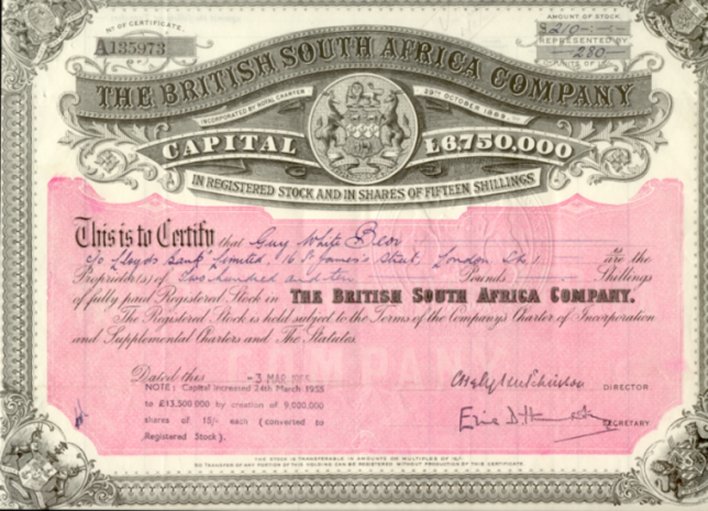 No OF CERTIFICATE.
A135973
AMOUNT OF STOCK
£210
REPRESENTED BY
280
UNITS OF 15/-
THE BRITISH SOUTH AFRICA COMPANY
INCORPORATED BY ROYAL CHARTER 29TH OCTOBER 1889.
CAPITAL £6,750,000
IN REGISTERED STOCK AND IN SHARES OF FIFTEEN SHILLINGS
This is to Certify that Guy White Beor
c/o Lloyds Bank Limited, 16 St James's Street, London, S.W.1 are the
Proprietor(s) of Two hundred and ten Pounds Shillings
of fully paid Registered Stock in THE BRITISH SOUTH AFRICA COMPANY.
The Registered Stock is held subject to the Terms of the Company's Charter of Incorporation
and Supplemental Charters and The Statutes.
COMPANY
Dated this -3 MAR 1955
NOTE: Capital increased 24th March 1955
to £13,500,000 by creation of 9,000,000
shares of 15/- each (converted to
Registered Stock).
DIRECTOR
SECRETARY
THE STOCK IS TRANSFERABLE IN AMOUNTS OR MULTIPLES OF 15/-.
NO TRANSFER OF ANY PORTION OF THIS HOLDING CAN BE REGISTERED WITHOUT PRODUCTION OF THIS CERTIFICATE.